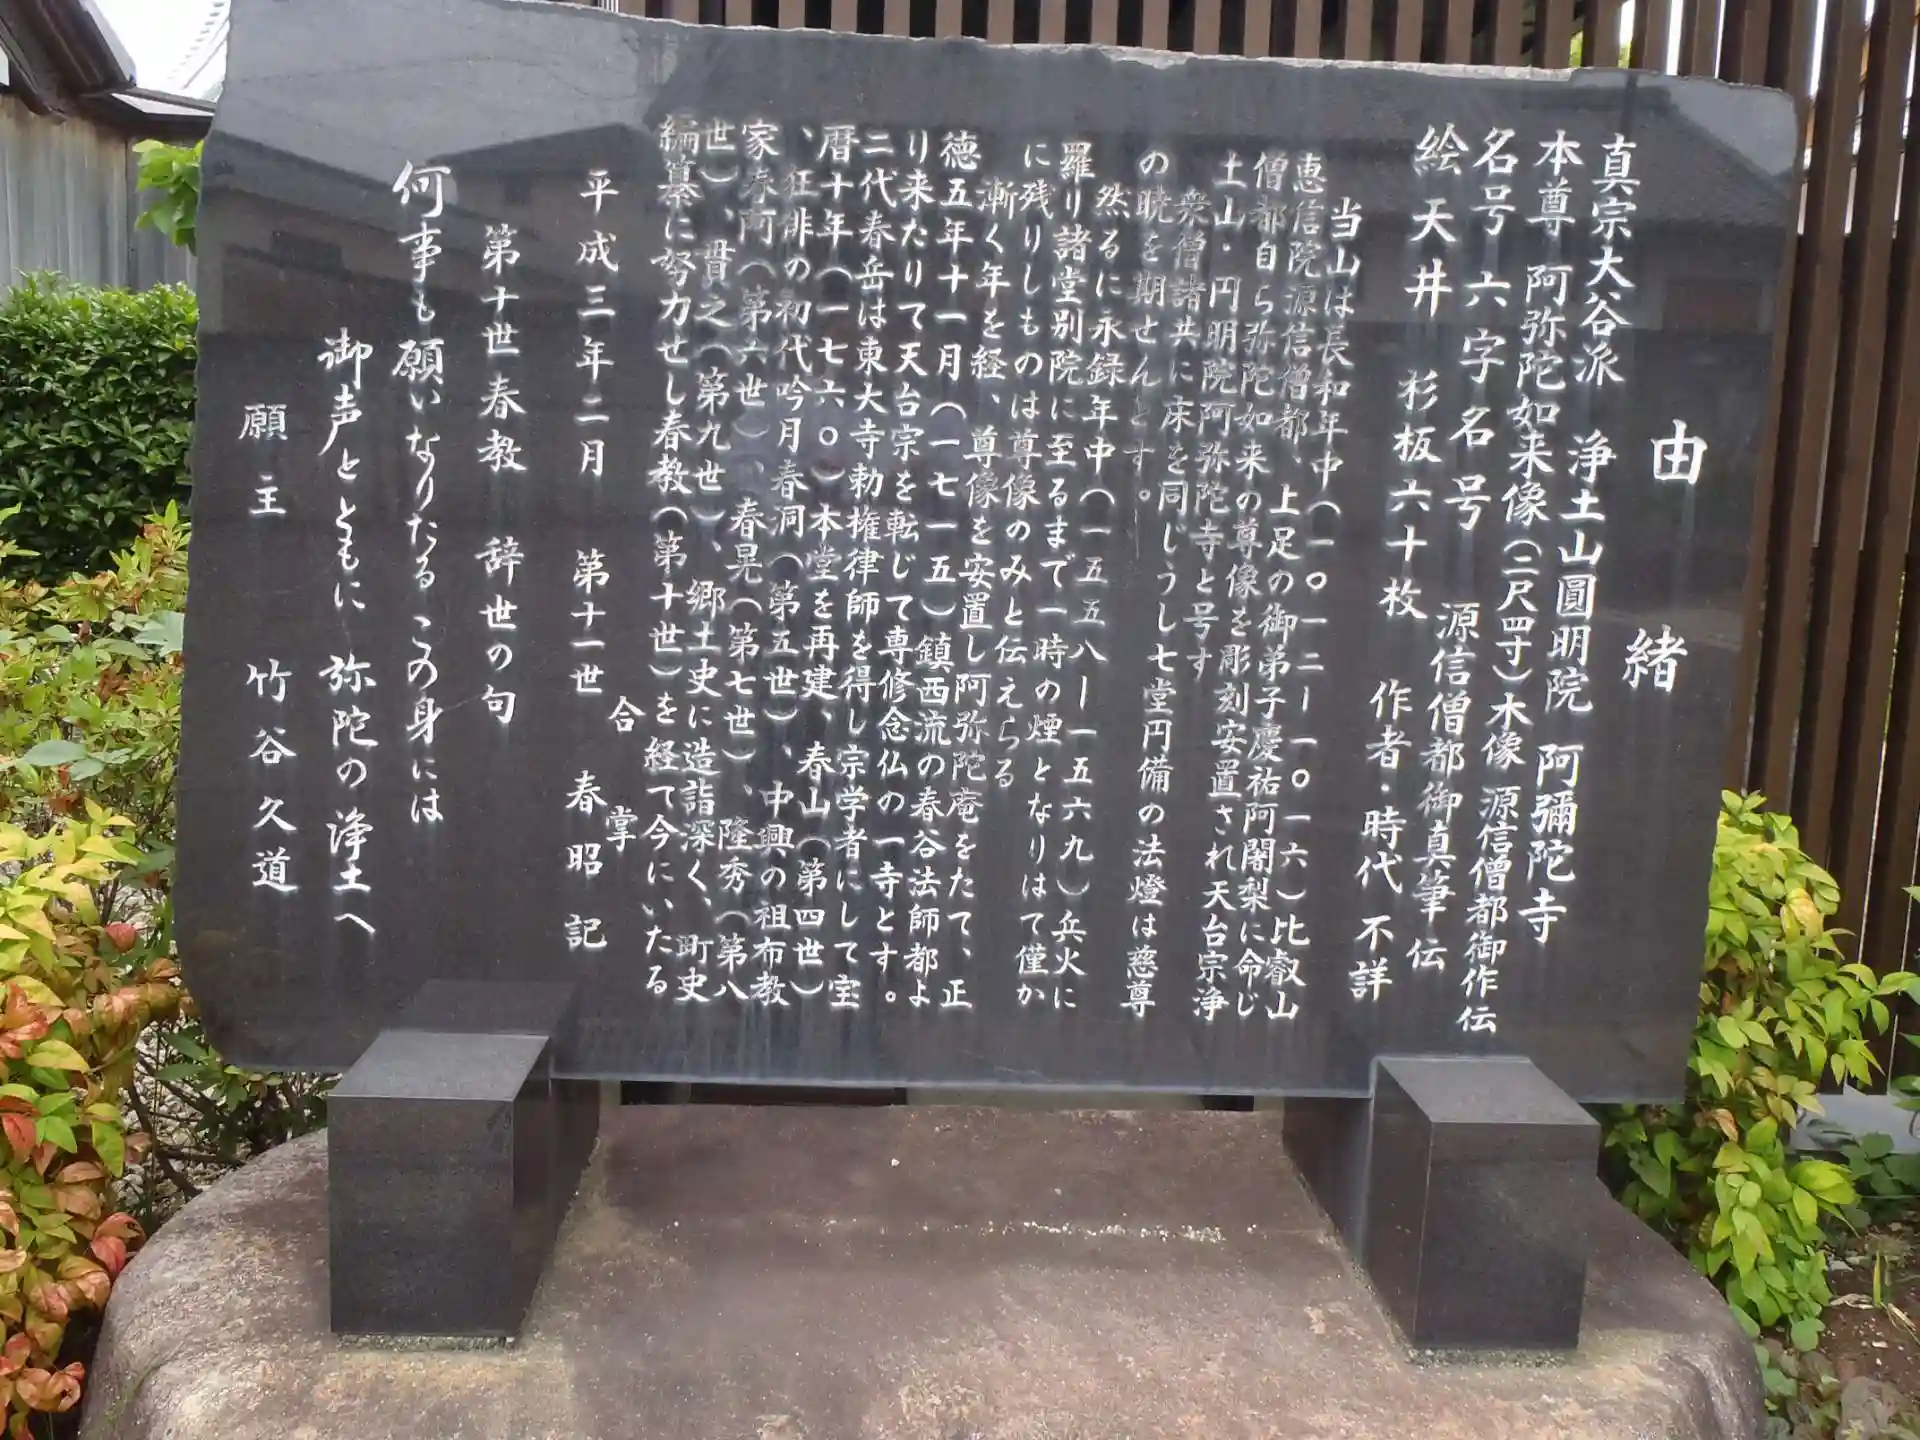 由緒
真宗大谷派 浄土山圓明院 阿彌陀寺
本尊 阿弥陀如来像(二尺四寸)木像 源信僧都御作伝
名号 六字名号 源信僧都御真筆伝
絵天井 杉板六十枚 作者・時代不詳
当山は長和年中(一〇一二ー一〇一六)比叡山
恵信院源信僧都、上足の御弟子慶祐阿闍梨に命じ
僧都自ら弥陀如来の尊像を彫刻安置され天台宗浄
土山・円明院阿弥陀寺と号す
衆僧諸共に床を同じうし七堂円備の法燈は慈尊
の暁を期せんとす。
然るに永録年中(一五五八ー一五六九)兵火に
羅り諸堂別院に至るまで一時の煙となりはて僅か
に残りしものは尊像のみと伝えらる
漸く年を経、尊像を安置し阿弥陀庵をたて、正
徳五年十一月(一七一五)鎮西流の春谷法師都よ
り来たりて天台宗を転じて専修念仏の一寺とす。
二代春岳は東大寺勅権律師を得し宗学者にして宝
暦十年(一七六〇)本堂を再建、春山(第四世)
、狂俳の初代吟月春洞(第五世)、中興の祖布教
家春阿(第六世)、春晃(第七世)、隆秀(第八
世)、貫之(第九世)、郷土史に造詣深く、町史
編纂に努力せし春教(第十世)を経て今にいたる
合掌
平成三年二月 第十一世 春昭 記
第十世春教 辞世の句
何事も願いなりたる この身には
御声とともに 弥陀の浄土へ
願主 竹谷久道